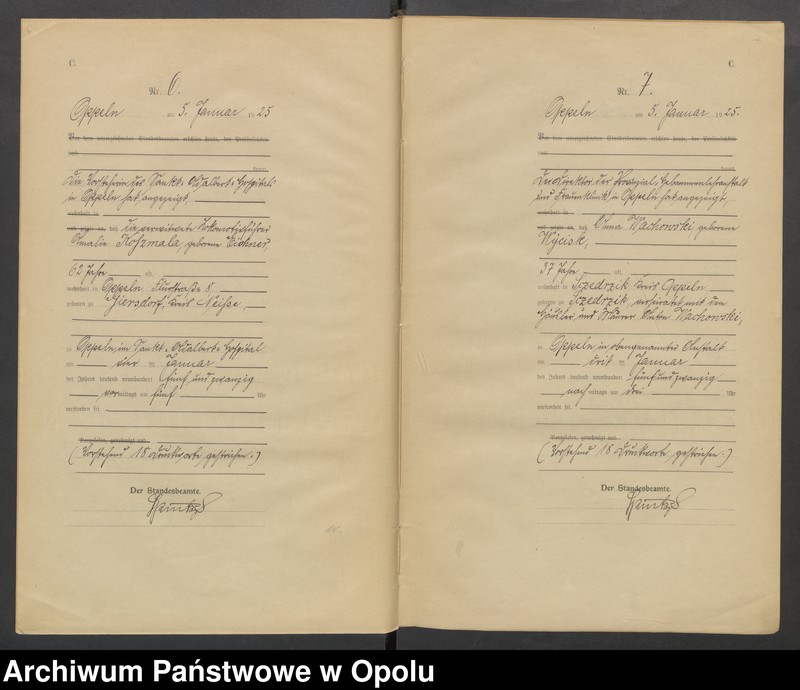 C.
Nr. 6.
Oppeln am 5. Januar 1925
Vor dem unterzeichneten Standesbeamten erschien heute, der Persönlichkeit
nach
kannt,
Die Vorsteherin des Sankt-Adalbert-Hospitals
in Oppeln hat angezeigt,
wohnhaft in
und zeigte an, daß die verwitwete Lokomotivführer
Amalie Koszmala, geborene Eichner,
62 Jahre alt,
wohnhaft in Oppeln, Flurstraße 8
geboren zu Giersdorf, Kreis Neiße,
zu Oppeln, im Sankt-Adalbert-Hospital
am vier ten Januar
des Jahres tausend neunhundert fünf und zwanzig
vormittags um fünf Uhr
verstorben sei.
Vorgelesen, genehmigt und
(Vorstehend 18 Druckworte gestrichen.)
Der Standesbeamte.
C.
Nr. 7.
Oppeln am 5. Januar 1925.
Vor dem unterzeichneten Standesbeamten erschien heute, der Persönlichkeit
nach
kannt,
Der Direktor der Provinzial-Hebammenlehranstalt
und Frauenklinik in Oppeln hat angezeigt,
wohnhaft in
und zeigte an, daß Anna Wachowski geborene
Wycisk,
37 Jahre alt,
wohnhaft in Sczedrzik Kreis Oppeln
geboren zu Sczedrzik verheiratet mit dem
Häusler und Maurer Anton Wachowski,
zu Oppeln, in obengenannter Anstalt
am drit ten Januar
des Jahres tausend neunhundert fünf und zwanzig
nachmittags um drei Uhr
verstorben sei.
Vorgelesen, genehmigt und
(Vorstehend 18 Druckworte gestrichen.)
Der Standesbeamte.
Archiwum Państwowe w Opolu